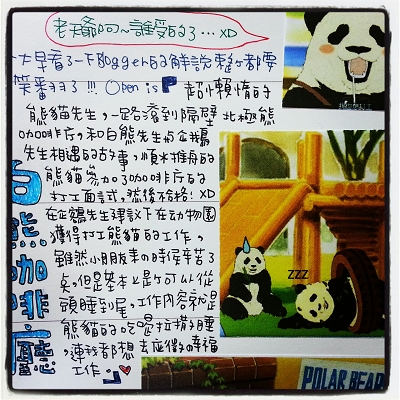 老天爺阿~誰受的了...XD
一大早看了一下Blogger的解說整個都要
笑番羽了!!! Open is P 超小賴惰的
熊貓先生,一路落到隔壁北極熊
咖啡店,和白熊先生與企鵝
先生相遇的故事,順水推舟的
熊貓參加了咖啡店的
打工面試,然後不合格!XD
在企鵝先生建議下在動物園
獲得打工熊貓的工作,
雖然小朋友來的時候辛苦了
點,但是基本上是可以從
頭睡到尾,工作內容就是
熊貓的吃喝拉撒睡
,連我都想去應徵の幸福
工作.
白熊咖啡廳
zzz
POLAR BEAR